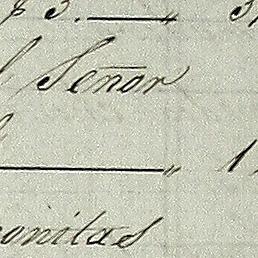 $3. — " 3
l Señor
— " 1
onitas